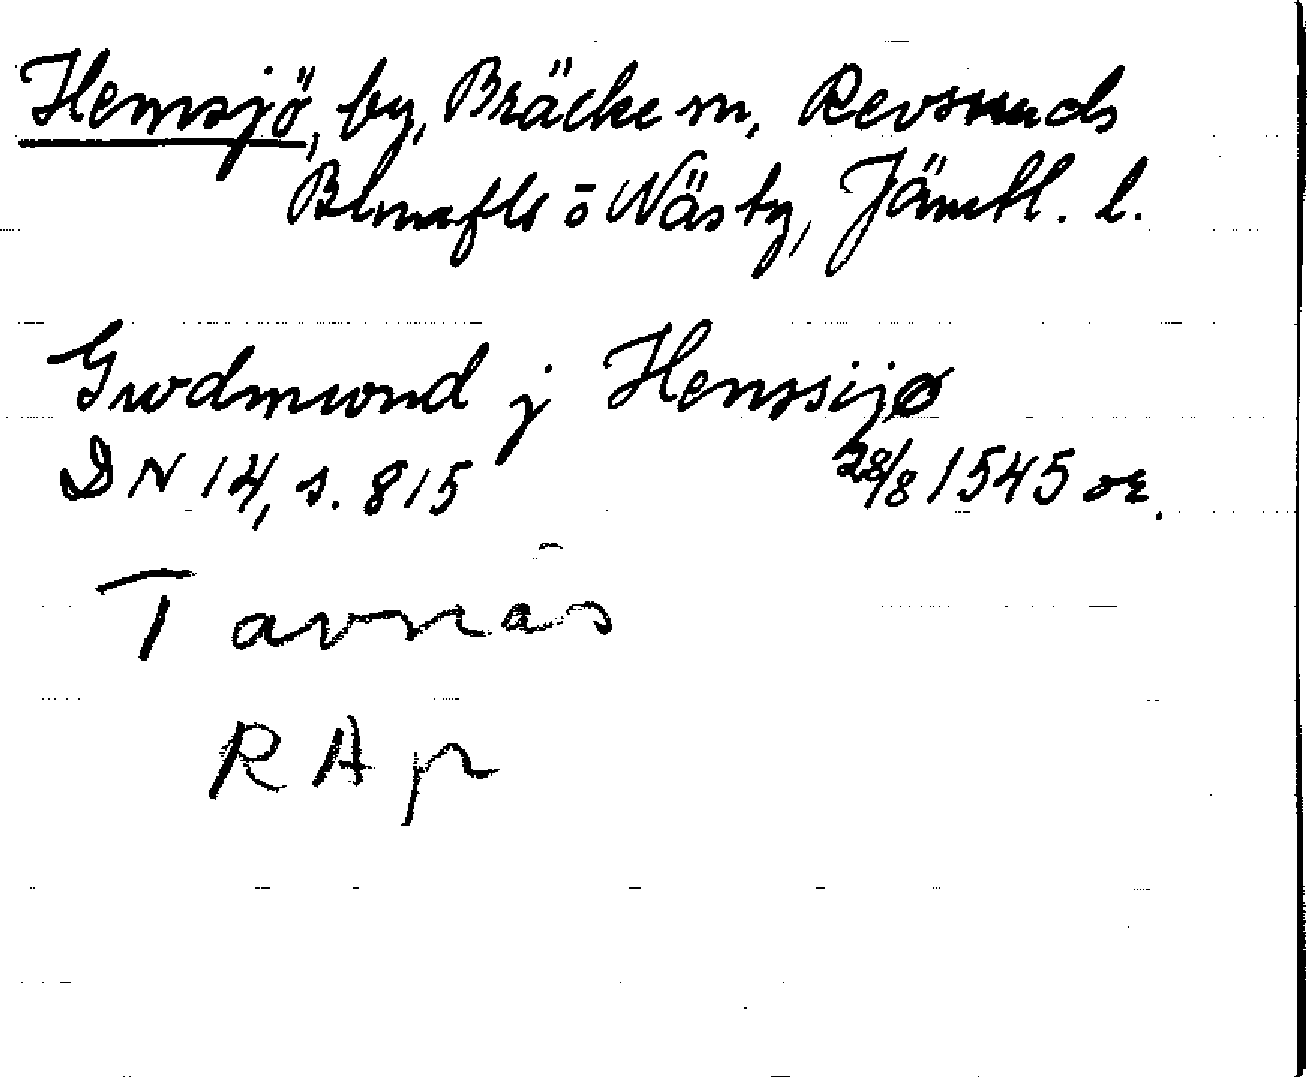 Hemsjö, by, Bräcke sn, Revsunds
Brunflo o Näs tg, Jämtl. l.
Gudmund j Henssijø
DN 14, s. 815 28/8 1545 or.
Tavnäs
RAp